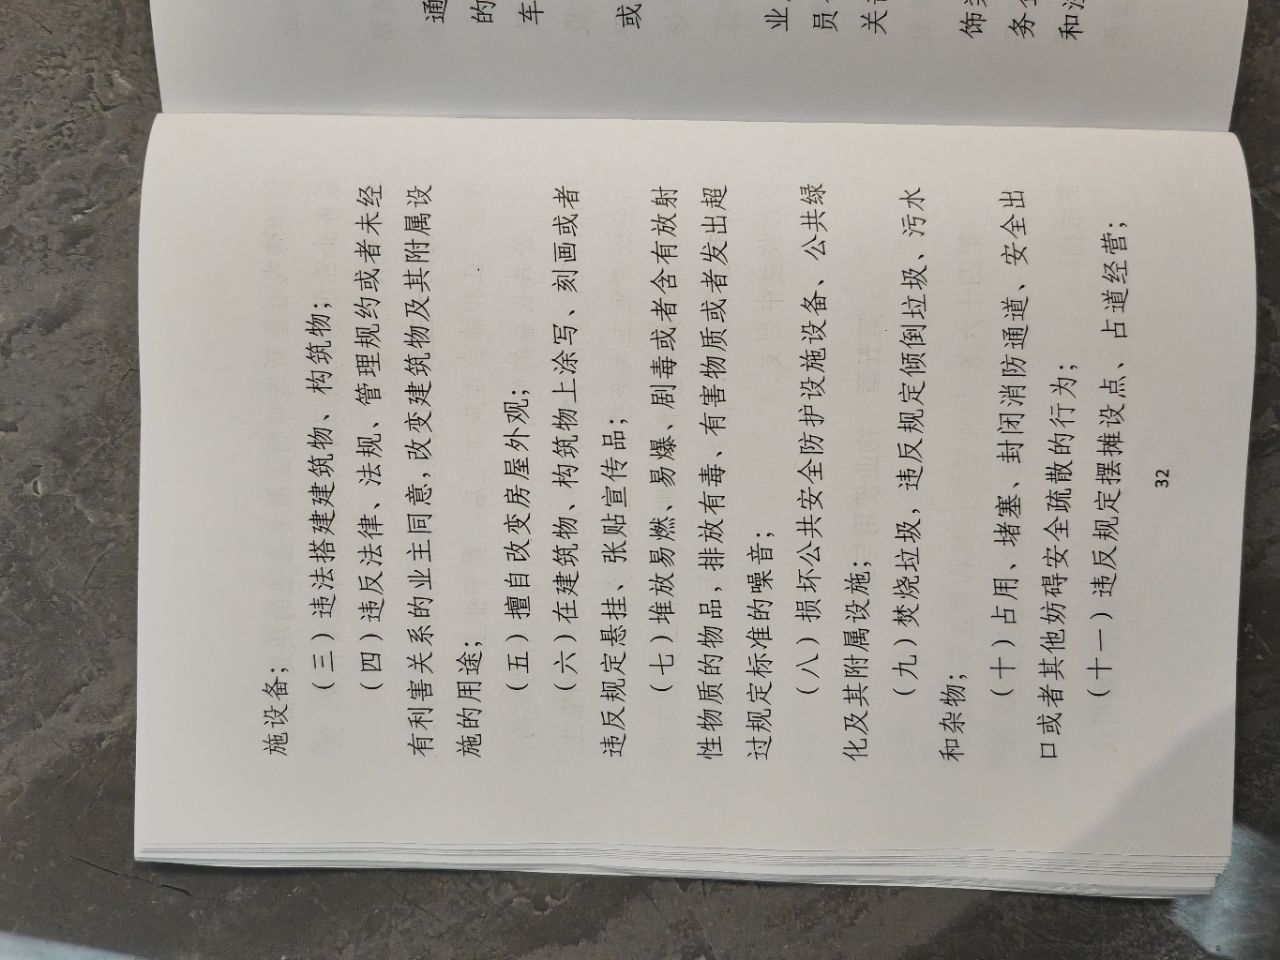 施设备；
（三）违法搭建建筑物、构筑物；
（四）违反法律、法规、管理规约或者未经
有利害关系的业主同意，改变建筑物及其附属设
施的用途；
（五）擅自改变房屋外观；
（六）在建筑物、构筑物上涂写、刻画或者
违反规定悬挂、张贴宣传品；
（七）堆放易燃、易爆、剧毒或者含有放射
性物质的物品，排放有毒、有害物质或者发出超
过规定标准的噪音；
（八）损坏公共安全防护设施设备、公共绿
化及其附属设施；
（九）焚烧垃圾，违反规定倾倒垃圾、污水
和杂物；
（十）占用、堵塞、封闭消防通道、安全出
口或者其他妨碍安全疏散的行为；
（十一）违反规定摆摊设点、占道经营；
32
通
的
车
或
业
员
关
饰
务
和